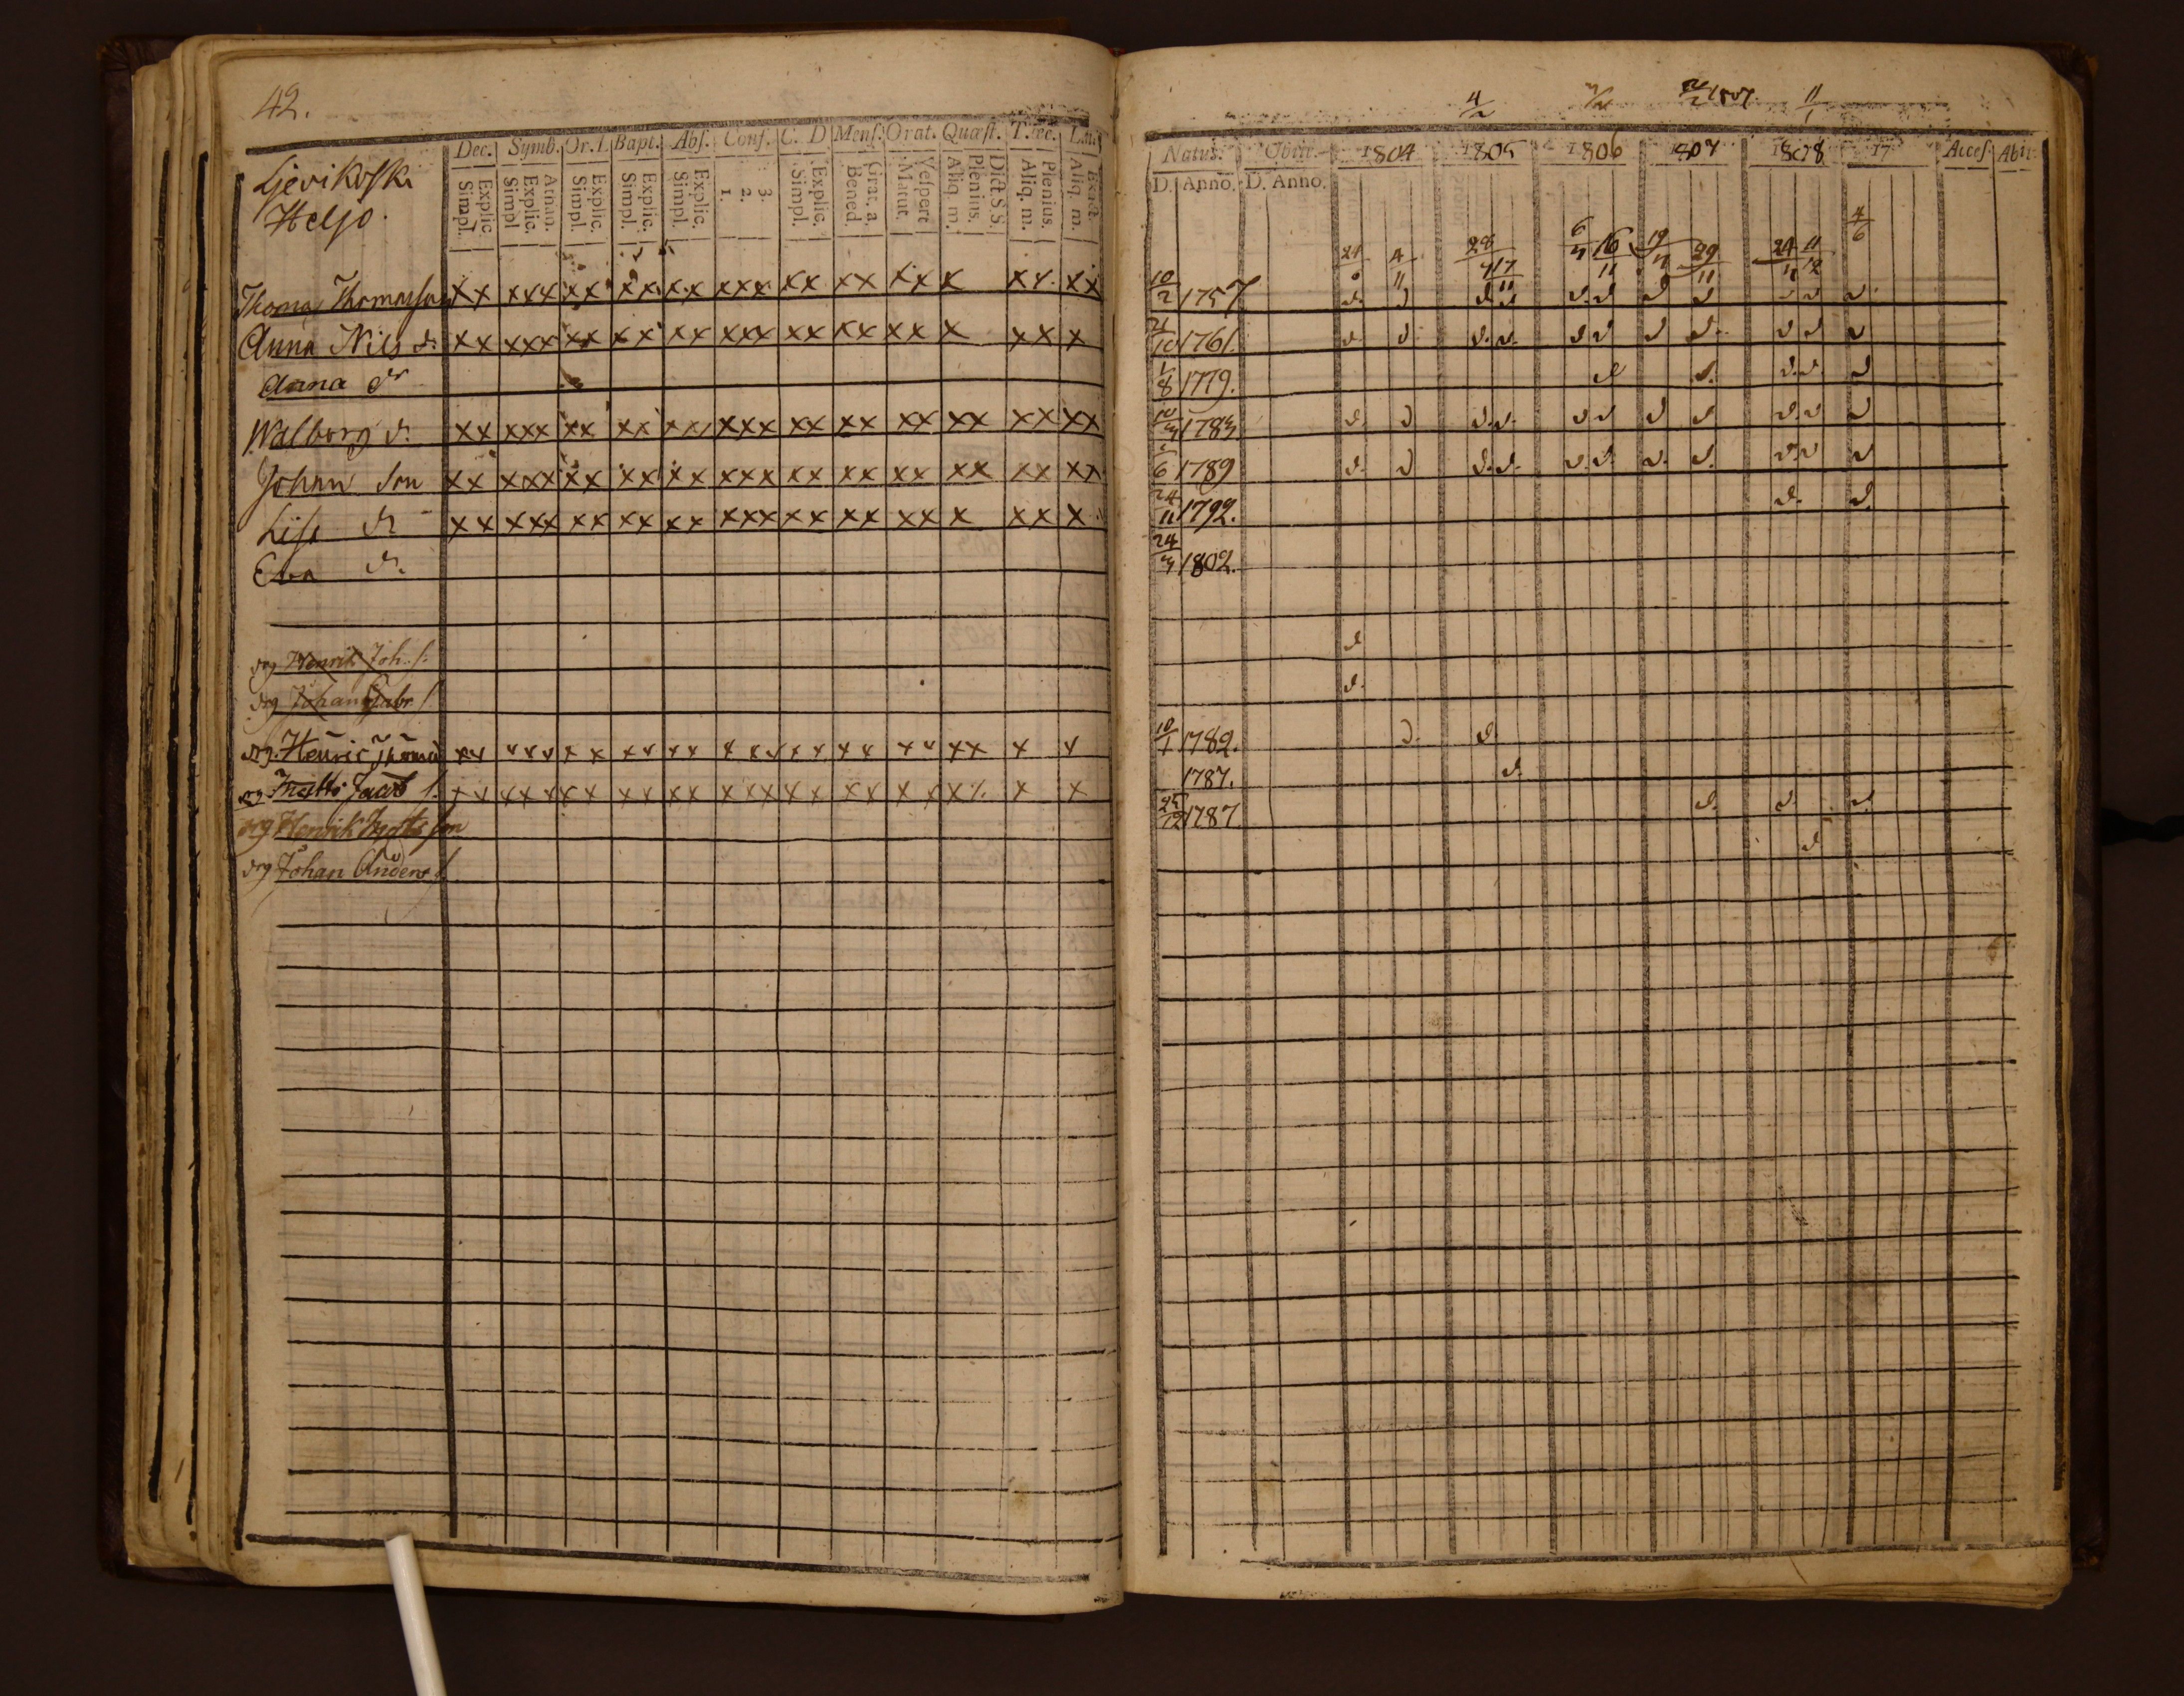 42.
Dec. Symb. Or. D. Bapt. Abs. Conf. C. D Mens. Orat. Quæst. T. œc. Lect.
Ljevikoski
Heljo.
Explic. Simpl. Athan. Explic. Simpl Explic. Simpl. Explic. Simpl. Explic. Simpl. 3. 2. 1. Explic. Simpl. Grat. a. Bened. Vespert Matut. Dict. S.S. Plenius. Aliq. m. Plenius. Aliq. m. Exact. Aliq. m.
Thomas Thomasson xx xxx xx xx xx xxx xx xx xx x xx. xx
Anna Nils d: xx xxx xx xx xx xxx xx xx xx x xx x
Anna dr
Walborg d: xx xxx xx xx xx xxx xx xx xx xx xx xx
Johan son xx xxx xx xx xx xxx xx xx xx xx xx xx
Lisa dr xx xxx xx xx xx xxx xx xx xx x xx x
Eva dr.
drg Henrik Joh. s:
drg Johan Gabr s
drg. Henric Thoma xx xxx xx xx xx x xx xx xx xx xx x x
drg Matts Jacob s. xx xx xx xx xx xx xxx xx xx x x x x. x x
drg Henrik Matts son
drg Johan Anders s
4/2 22/2 1807. 11/1
Natus. Obiit. 1804 1805 1806 1807 1808 17 Acces. Abit.
D. Anno. D. Anno.
4/6
6/4 16/11 19/4 29/11 24/4 11/12
10/2 1757 d. d d. d d. d d d d d d
21/10 1761. d. d. d. d. d d d d. d d d
1/8 1779. d d. d. d. d
10/3 1783 d. d d. d. d d d d d. d d
6 1789 d. d d. d. d. d. d. d. d. d d
24/11 1792. d. d.
24/3 1802.
d
d.
10/1 1782. d. d.
1787. d.
25/12 1787 d. d. d.
d